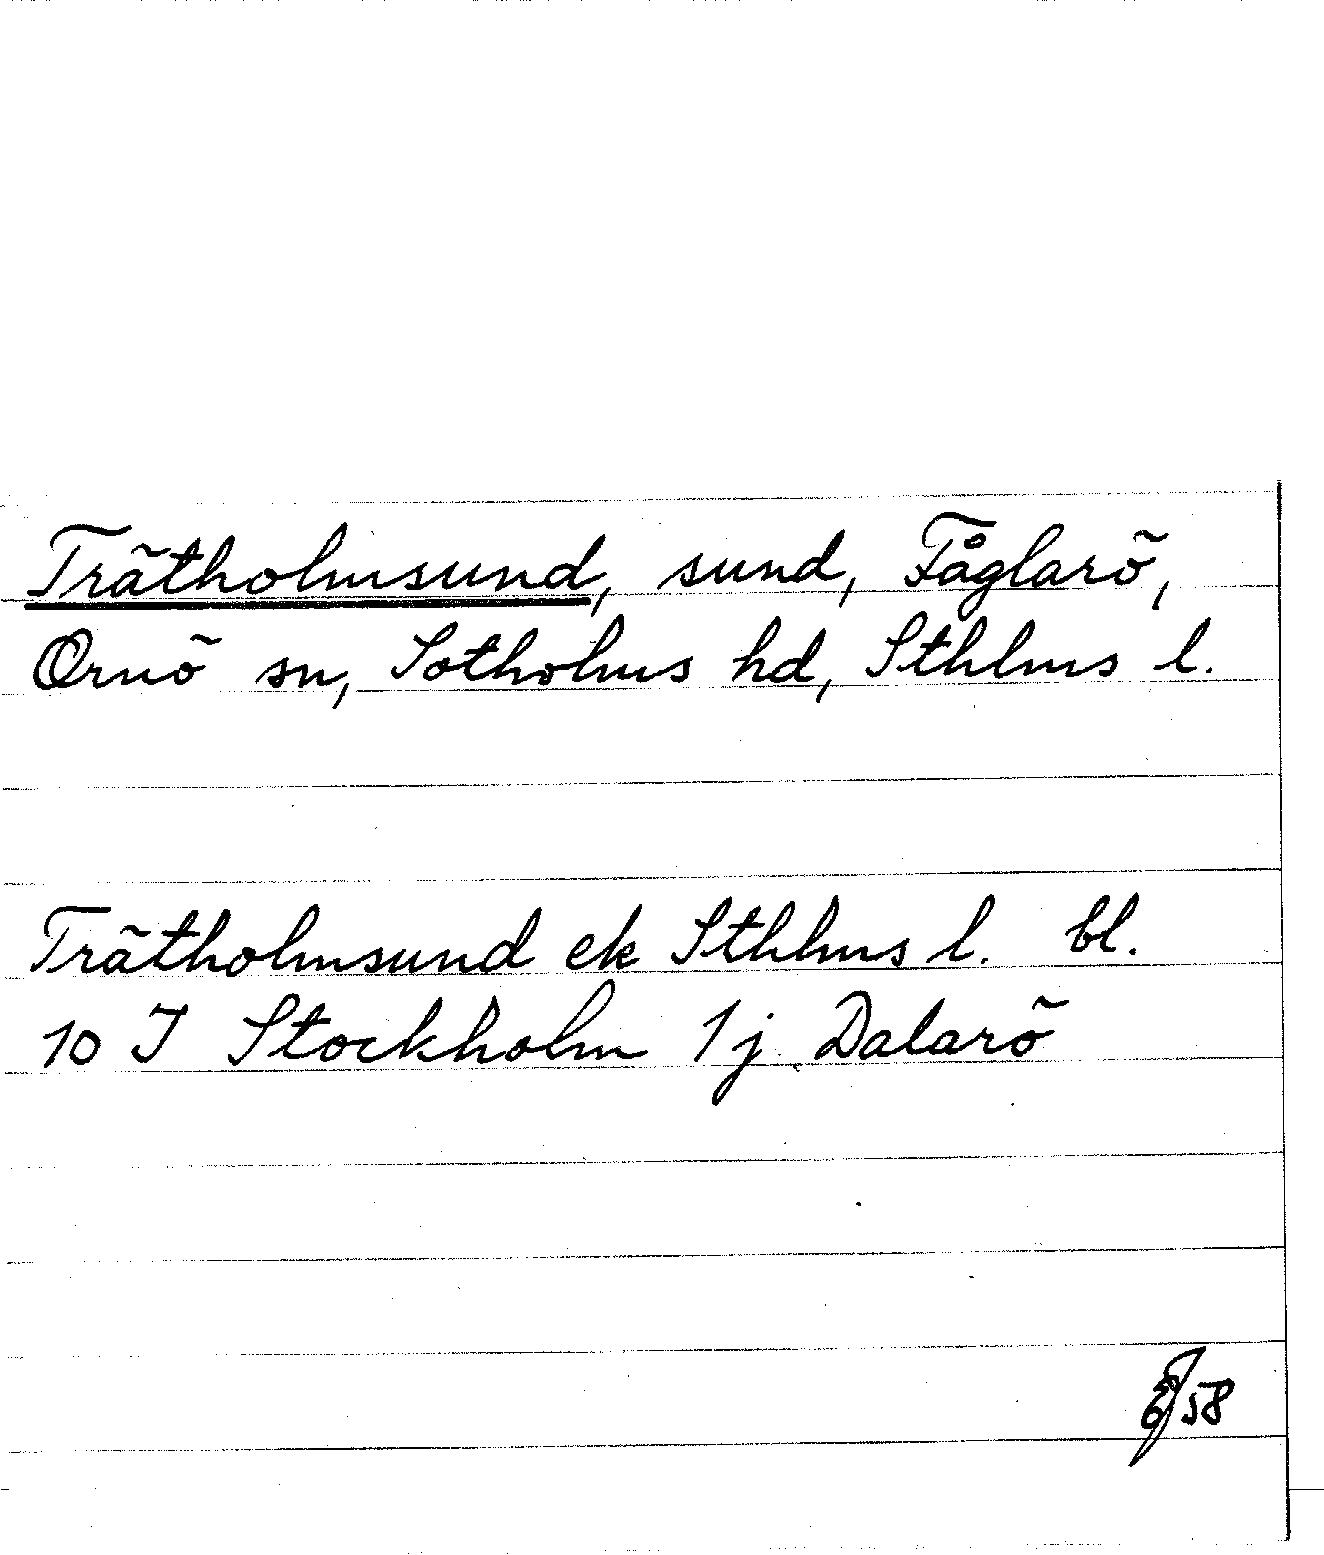 Trätholmsund, sund, Fåglarö,
Ornö sn, Sotholms hd, Sthlms l.
Trätholmsund ek Sthlms l. bl.
10 J Stockholm 1j Dalarö
58